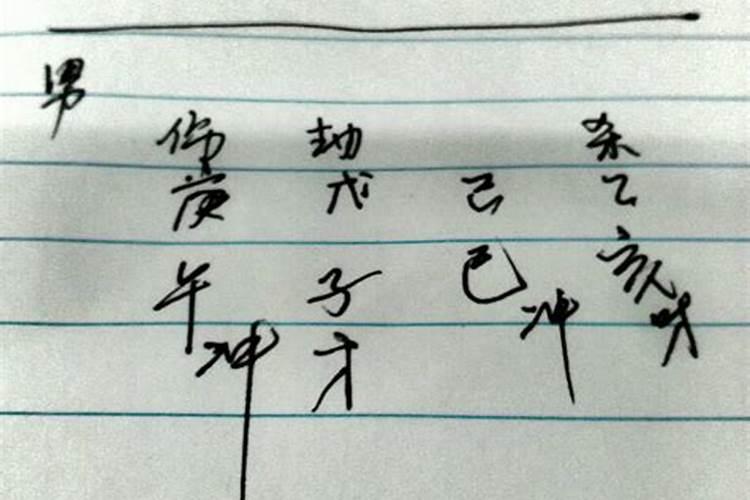 男
伤 劫 杀
庚 戊 己 乙
午 子 巳 亥
冲
冲 才